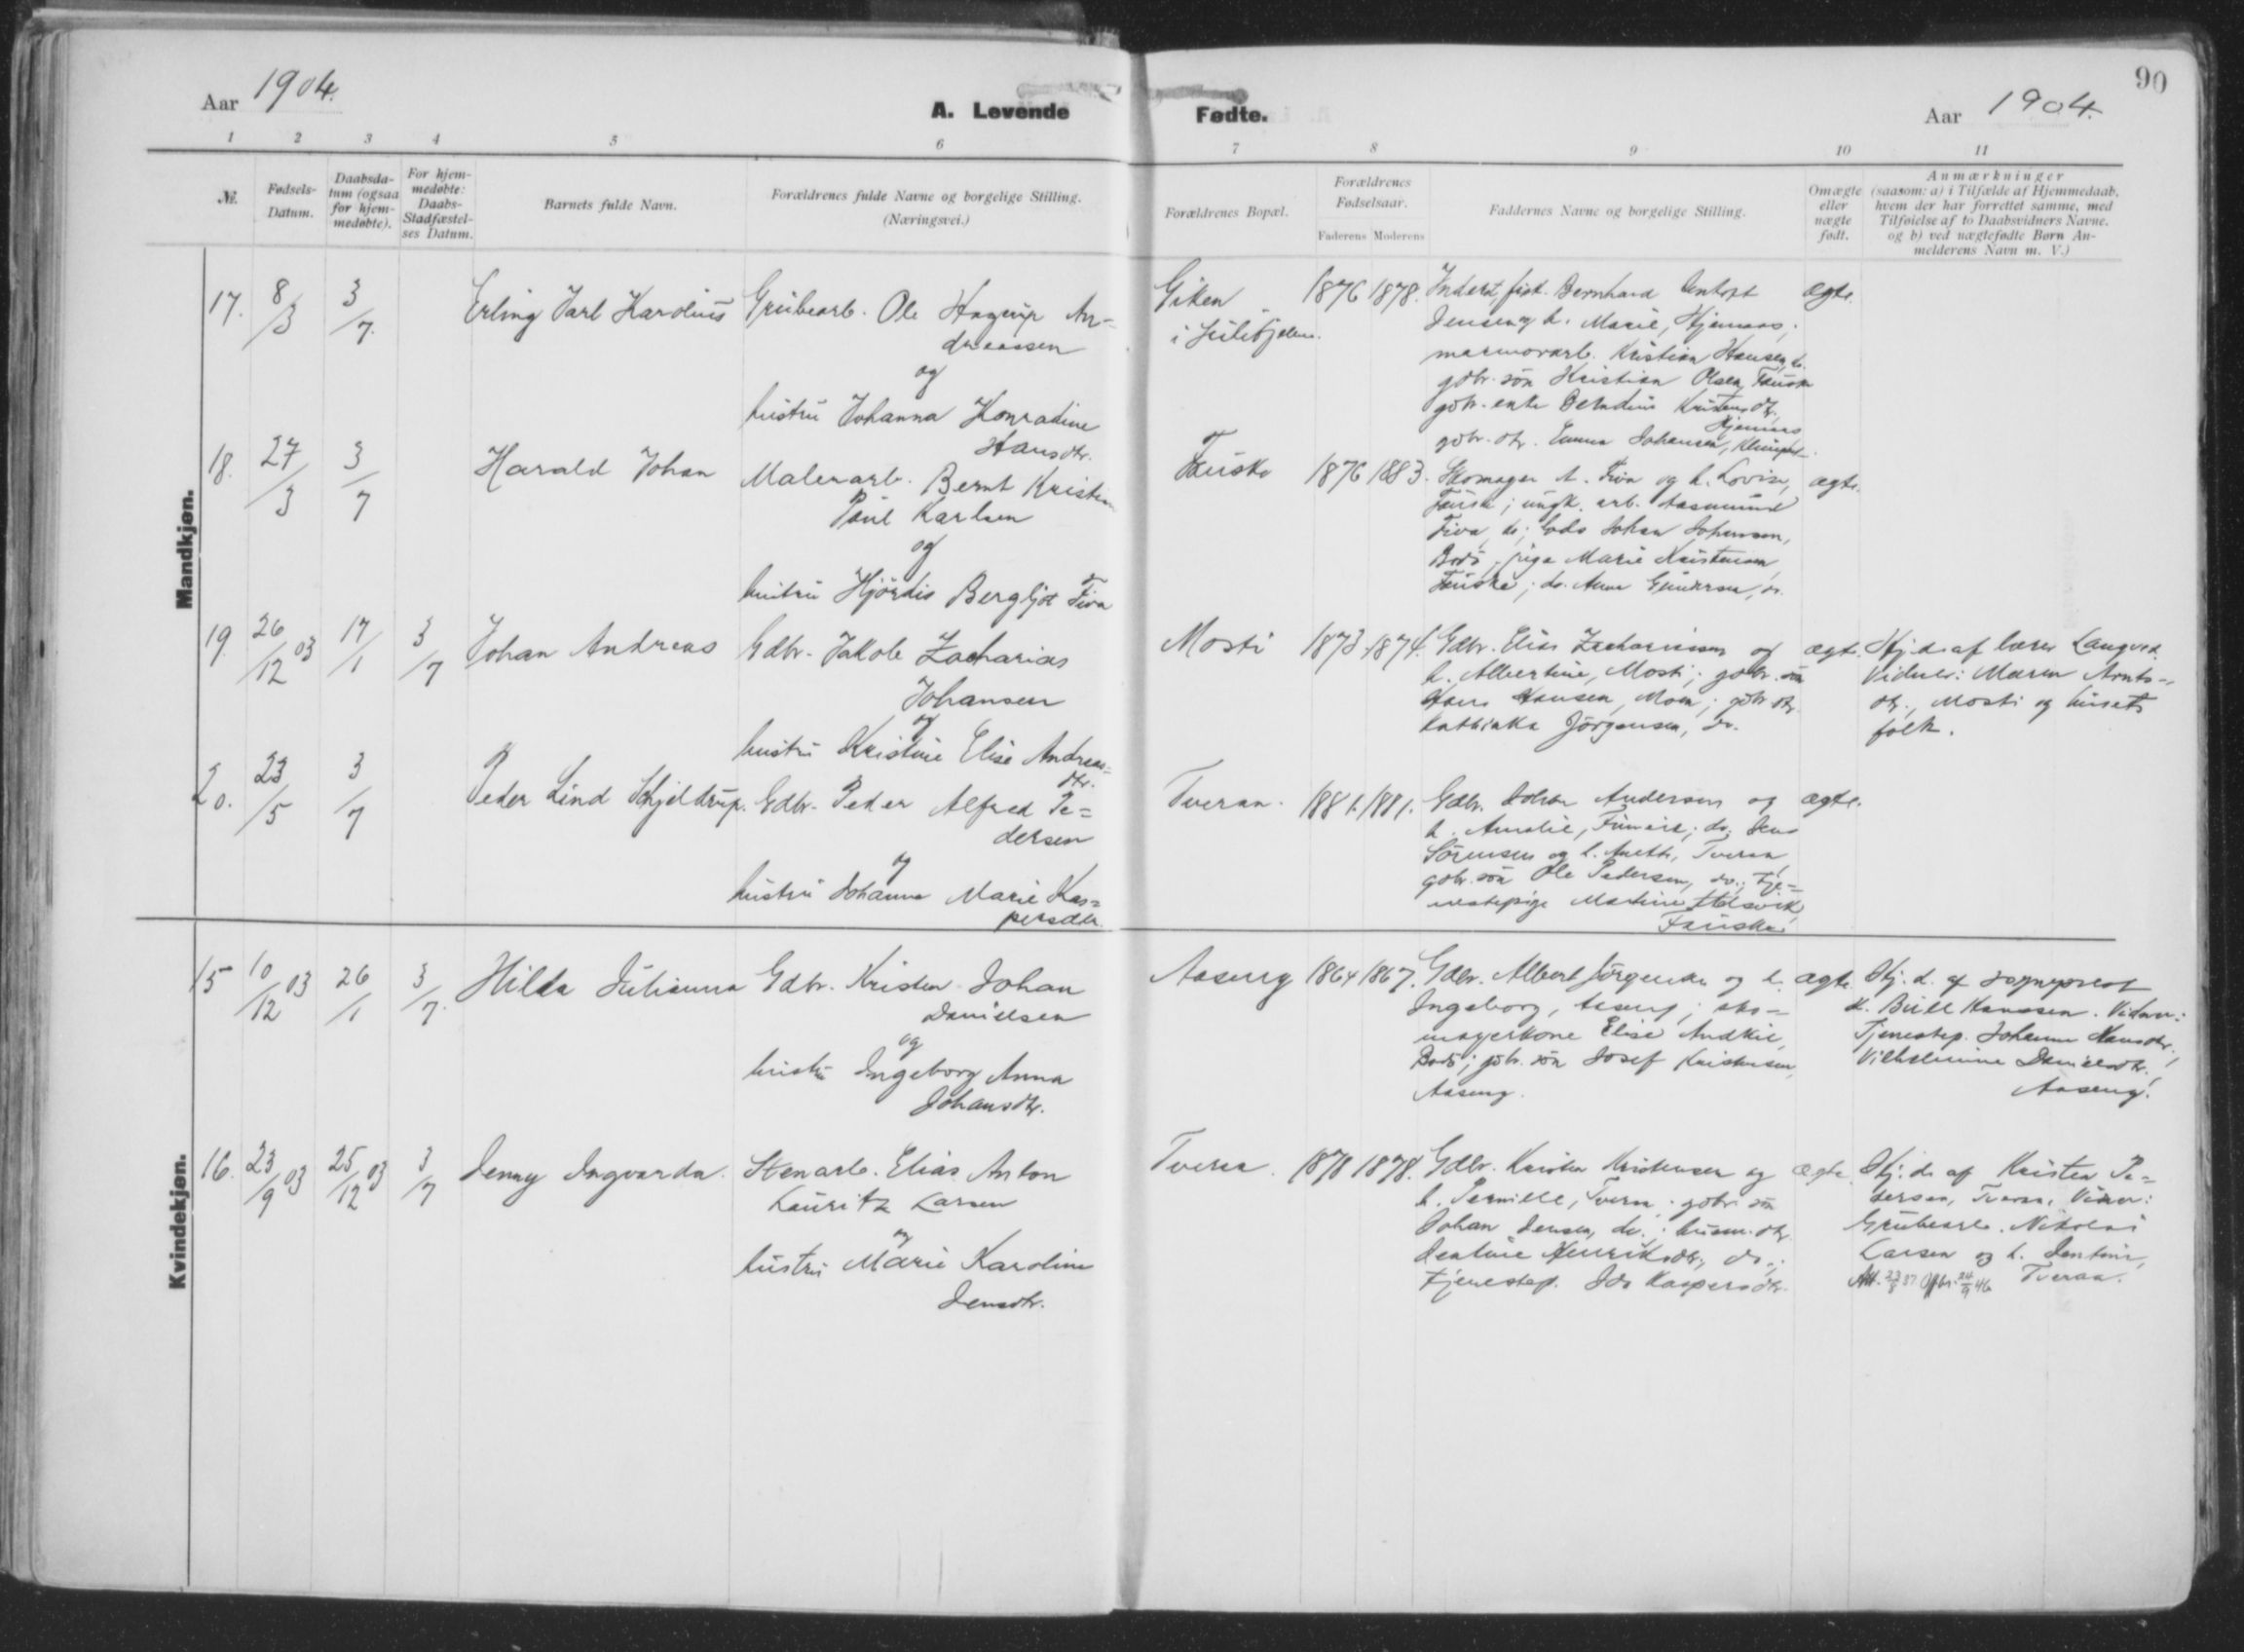 90
Aar 1904.
A. Levende Fødte.
Aar 1904.
1 2 3 4 5 6 7 8 9 10 11
№.
Fødsels-
Datum.
Daabsda-
tum (ogsaa
for hjem-
medøbte).
For hjem-
medøbte:
Daabs-
Stadfæstel-
ses Datum.
Barnets fulde Navn.
Forældrenes fulde Navne og borgelige Stilling.
(Næringsvei.)
Forældrenes Bopæl.
Forældrenes
Fødselsaar.
Faderens Moderens
Faddernes Navne og borgelige Stilling.
Omægte
eller
nægte
født.
Anmærkninger
(saasom: a) i Tilfælde af Hjemmedaab,
hvem der har forrettet samme, med
Tilføielse af to Daabsvidners Navne.
og b) ved uægtefødte Børn An-
melderens Navn m. V.)
Mandkjøn.
17. 8/3 3/7. Erling Jarl Karolius
Grubearb. Ole Hagerup An-
dreassen
og
hustru Johanna Konradine
Hansdtr.
Giken
i
1876 1878.
Inderst, fisk. Bernhard
Jensen og h. Marie,
marmorarb. Kristian Hansen, do.
gdbr. søn Kristian Olsen, Fauske
gdbr. enke Kristensdtr.,
gdbr. dtr. Emma Johansen,
ægte.
18. 27/3 3/7 Harald Johan
Malerarb. Bernt Kristian
Paul Karlsen
og
hustru Hjørdis Bergljot Fiva
Fauske 1876 1883.
Skomager A. Fiva og h. Lovise,
Fauske; ungk. arb. Aasmund
Fiva, do; Johan Johansen,
Bodø; pige Marie Kristensen,
Fauske; do. Anna Gundersen, do.
ægte.
19. 26/12 03 17/1 3/7 Johan Andreas
Gdbr. Jakob Zacharias
Johansen
og
hustru Kristine Elise Andreas-
dtr.
Mosti 1873. 1874.
Gdbr. Elias Zachariassen og
h. Albertine, Mosti; gdbr. søn
Hans Hansen, Moen; gdbr. dtr.
Kathinka Jörgensen, do.
ægte.
Hj. d. af lærer Langved.
Vidner: Maren Arnts-
dtr., Mosti og husets
folk.
20. 23/5 3/7 Peder Lind Schjeldrup.
Gdbr. Peder Alfred Pe-
dersen
og
hustru Johanna Marie Kas-
persdtr.
Tveraa. 1881. 1881.
Gdbr. Johan Andersen og
h. Amalie, do. Jens
Sörensen og h. Tveraa,
gdbr. søn Ole Pedersen, do.; tje-
nestepige Martine
Fauske.
ægte.
Kvindekjøn.
15 10/12 03 26/1 3/7. Hilda Julianna
Gdbr. Kristen Johan
Danielsen
og
hustru Ingeborg Anna
Johansdtr.
Aaseng 1864 1867.
Gdbr. Albert Jörgensen og h.
Ingeborg, Aaseng; sko-
magerkone Elise
Bodø; gdbr. søn Josef Kristensen,
Aaseng.
ægte
Hj. d. af sogneprest
K. Bull Hanssen. Vidner:
Tjenestep. Johanna Hansdtr.,
Vilhelmine Danielsdtr.,
Aaseng.
16. 23/9 03 25/12 03 3/7 Jenny Ingvarda.
Stenarb. Elias Anton
Lauritz Larsen
og
hustru Marie Karoline
Jensdtr.
Tveraa. 1878 1878.
Gdbr. Kristen Kristensen og
h. Pernille, Tveraa; gdbr. søn
Johan Jensen, do.; husm. dtr.
Jentine Henriksdtr., do.;
tjenestep. Ida Kaspersdtr.
ægte.
Hj. d. af Kristen Pe-
dersen, Tveraa. Vidner:
Grubearb. Nikolai
Larsen og h. Jentine,
Att. 23/8 37 24/9 46 Tveraa.